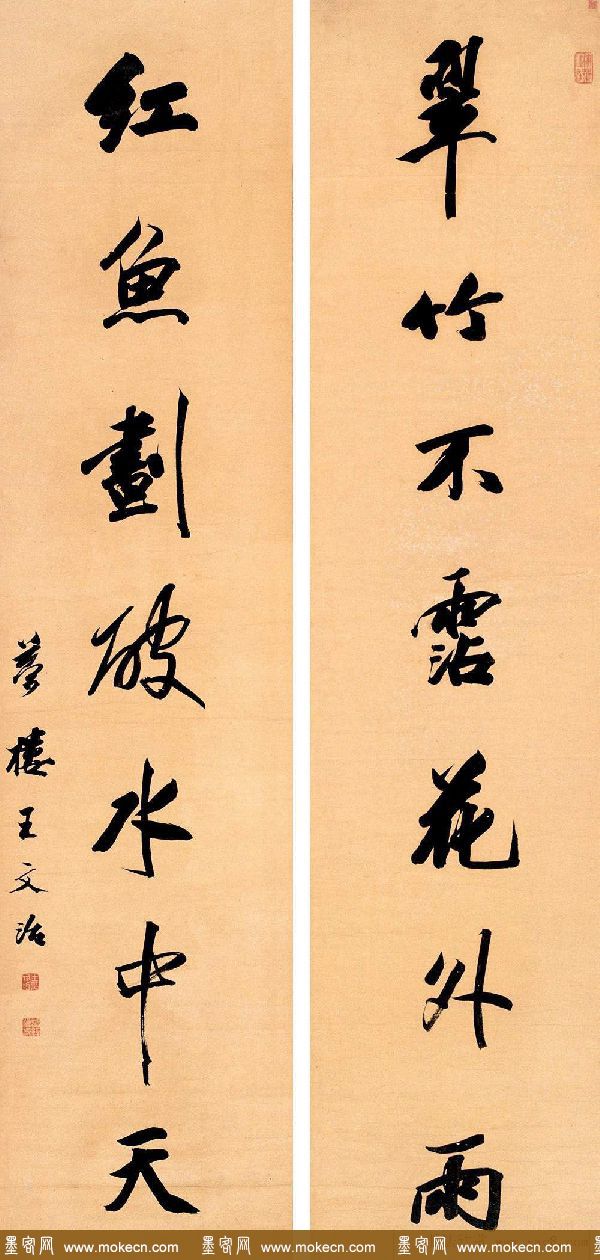 翠竹不霑花外雨
红鱼劃破水中天
夢樓王文治
墨客网 www.mokecn.com 墨客网 www.mokecn.com 墨客网 www.mokecn.com